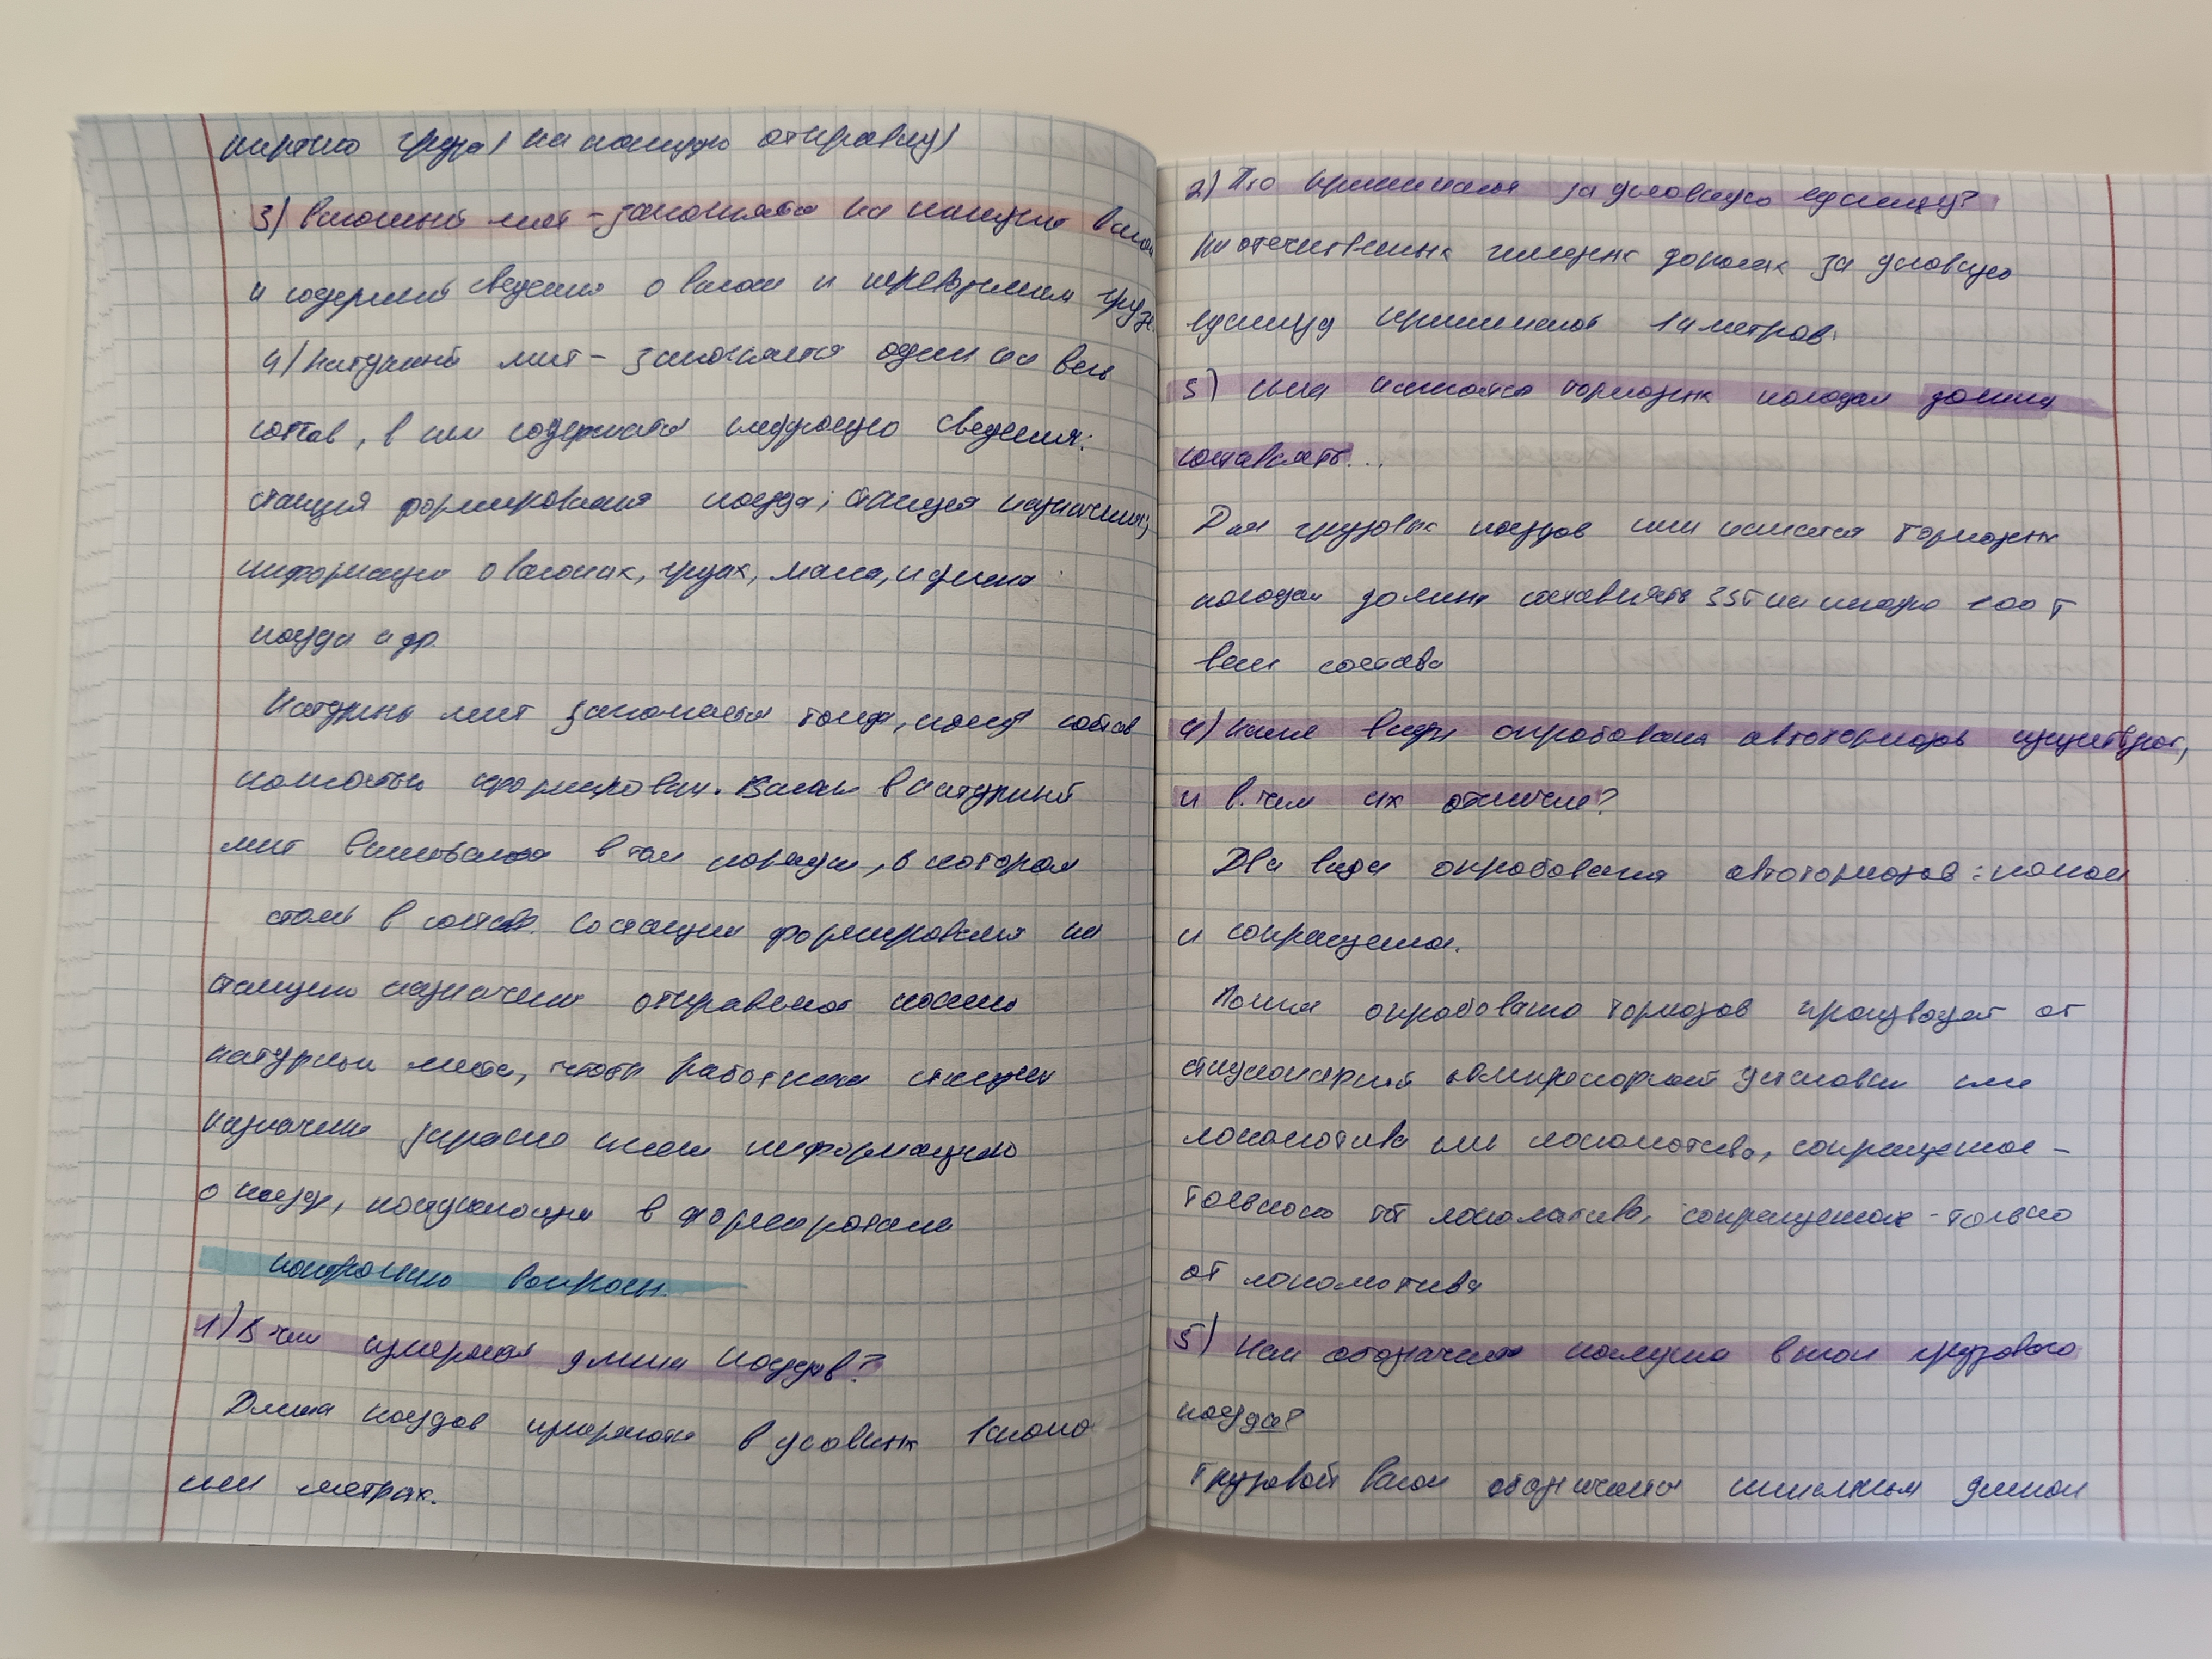 партию груза) на каждую отправку)
3) Вагонный лист – заполняется на каждый вагон
и содержит сведения о вагоне и перевозимом грузе.
4) Натурный лист – заполняется один на весь
состав, в нем содержатся следующие сведения:
станция формирования поезда; станция назначения;
информация о вагонах, грузах, масса, и длина
поезда и др.
Натурный лист заполняется тогда, когда состав
полностью сформирован. Вагоны в натурный
лист вписываются в том порядке, в котором
стоят в составе. Со станции формирования на
станцию назначения отправляют копию
натурного листа, чтобы работники станции
назначения заранее имели информацию
о поезде, поступающем в
контрольные вопросы.
1) В чем измеряется длина поездов?
Длина поездов измеряется в условных вагонах
или метрах.
2) Что принимается за условную единицу?
На отечественных железных дорогах за условную
единицу принимают 14 метров.
3) сила нажатия тормозных колодок должна
составлять...
Для грузовых поездов сила нажатия тормозных
колодок должна составлять 33т на каждые 100 т
веса состава
4) Какие виды опробования автотормозов существуют,
и в чем их отличие?
Два вида опробования автотормозов: полное
и сокращенное.
Полное опробование тормозов производят от
стационарной компрессорной установки или
локомотива или локомотива, сокращенное –
только от локомотива, сокращенное - только
от локомотива
5) Как обозначается последний вагон грузового
поезда?
Грузовой вагон обозначается диском